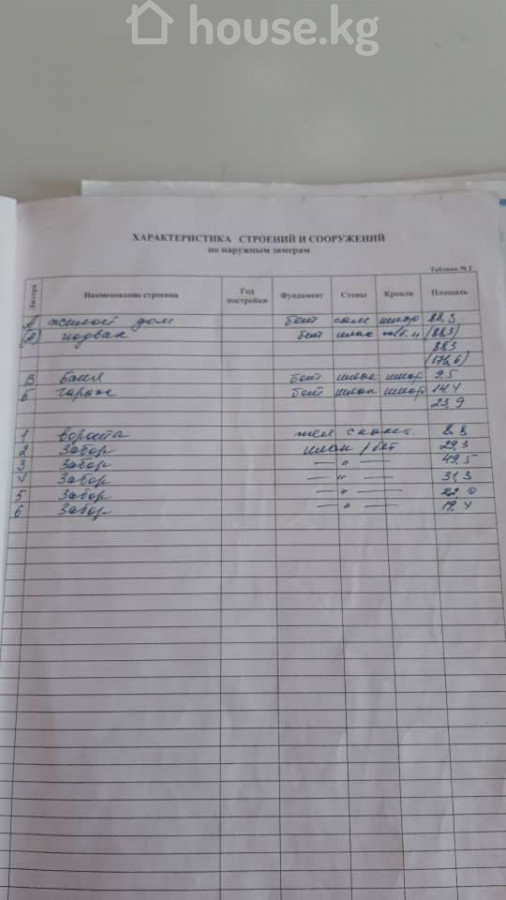 house.kg
ХАРАКТЕРИСТИКА СТРОЕНИЙ И СООРУЖЕНИЙ
по наружным замерам
Таблица № 2
Литера Наименование строения Год постройки Фундамент Стены Кровля Площадь
А жилой дом бет шифр 88,3
(А) подвал бет шлак ж/б. (88,3)
88,3
(176,6)
В баня бет шлак шиф. 9.5
Б гараж бет шлак шиф. 14.4
23,9
1 ворота жел 8,8
2 Забор шлак / бет 29,3
3 Забор — " — 49.5
4 Забор — " — 31,3
5 Забор — " — 22.0
6 Забор — " — 19,4